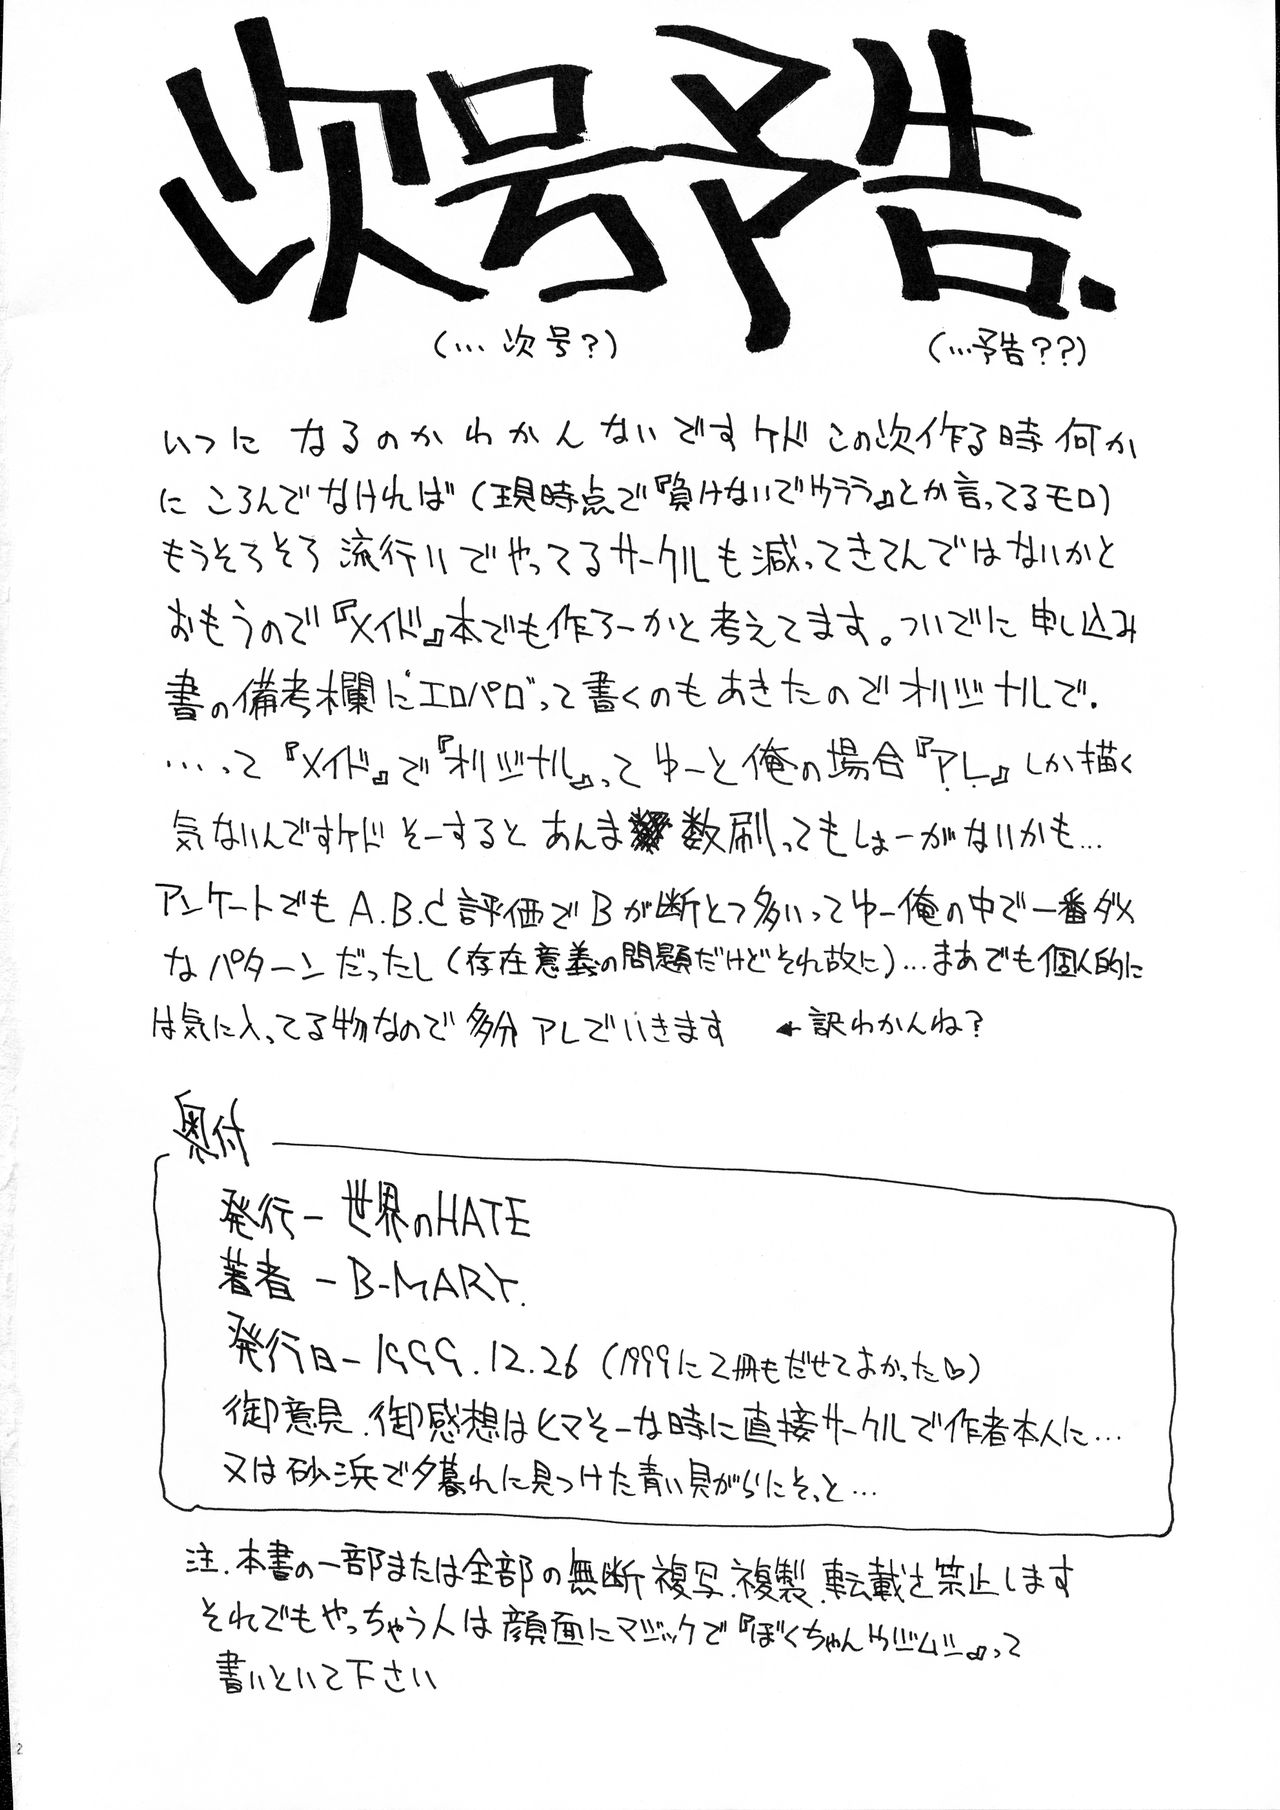 次号予告.
(…次号?) (…予告??)
いつになるのかわかんないですケドこの次作る時何か
にころんでなければ(現時点で『負けないでウララ』とか言ってるモロ)
もうそろそろ流行りでやってるサークルも減ってきてんではないかと
おもうので『メイド』本でも作ろーかと考えてます。ついでに申し込み
書の備考欄に"エロパロ"って書くのもあきたのでオリジナルで.
…って『メイド』で『オリジナル』ってゆーと俺の場合『P.L.』しか描く
気ないんですケドそーするとあんま数刷ってもしょーがないかも…
アンケートでもA.B.C評価でBが断とつ多いってゆー俺の中で一番ダメ
なパターンだったし(存在意義の問題だけどそれ故に)…まあでも個人的に
は気に入ってる物なので多分アレでいきます ←訳わかんね?
奥付
発行ー世界のHATE
著者ーB-MARY.
発行日ー1999.12.26(1999に2冊もだせてよかった♡)
御意見.御感想はヒマそーな時に直接サークルで作者本人に…
又は砂浜で夕暮れに見つけた青い貝がらにそっと…
注.本書の一部または全部の無断複写.複製.転載を禁止します
それでもやっちゃう人は顔面にマジックで『ぼくちゃん』って
書いといて下さい
2